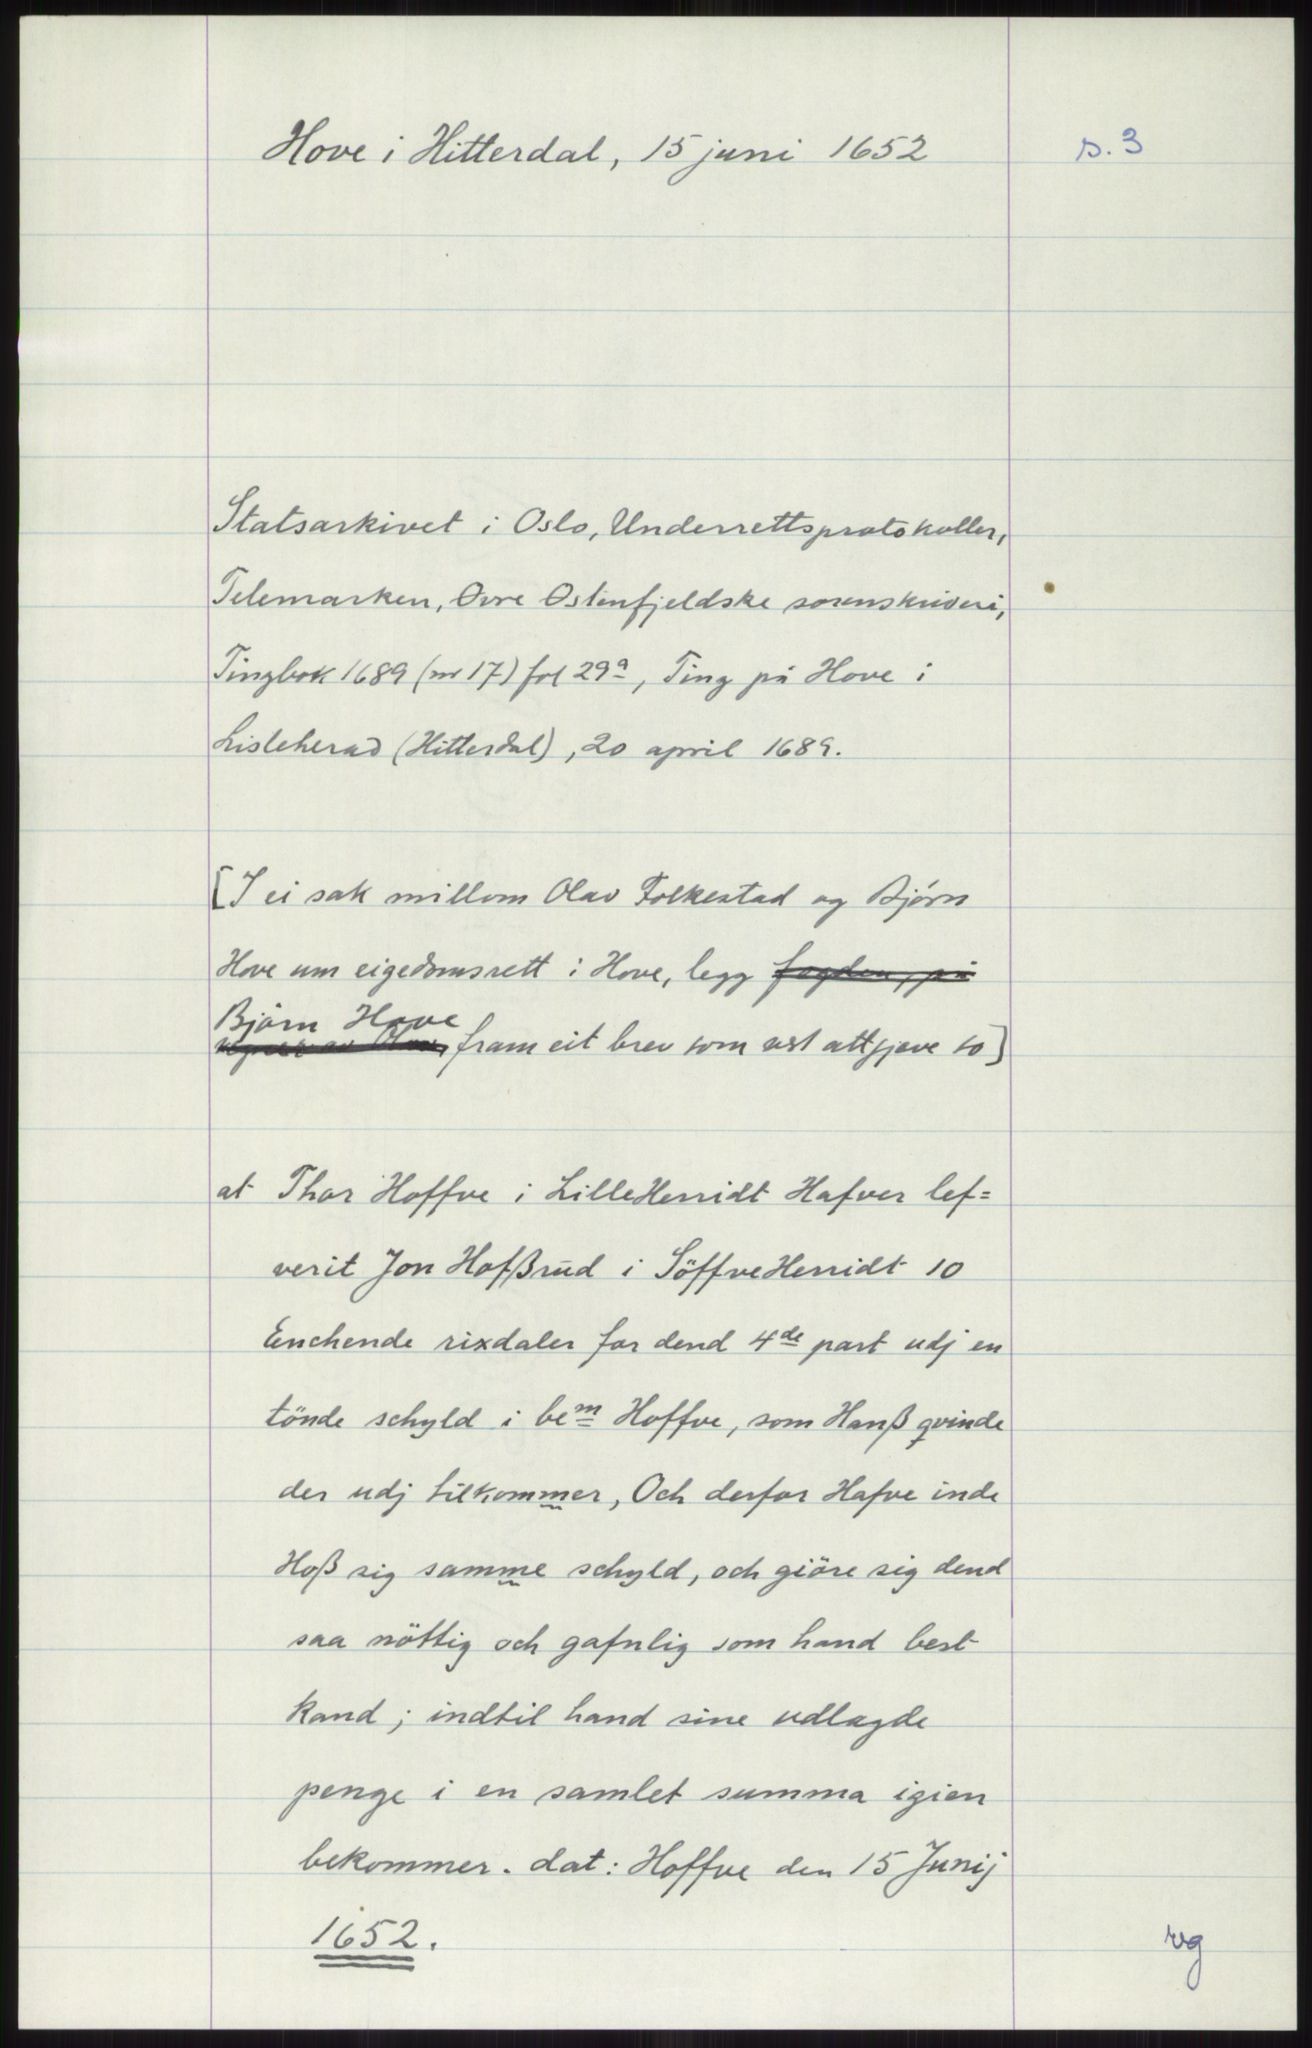 Hove i Hitterdal, 15 juni 1652
s. 3
Statsarkivet i Oslo, Underrettsprotokoller,
Telemarken, Øvre Østenfjeldske sorenskriveri,
Tingbok 1689 (nr 17) fol 29a, Ting på Hove i
Lisleherad (Hitterdal), 20 april 1689.
[I ei sak millom Olav Folkestad og Bjørn
Hove um eigedomsrett i Hove, legg fogden, på
Bjørn Hove
fram eit brev som vert attgjeve so]
at Thor Hoffve i LilleHerridt Hafver lef=
verit Jon Hofßrud i SöffveHerridt 10
Enchende rixdaler for dend 4de part udj en
tönde schyld i bem Hoffve, som Hanß qvinde
der udj tilkommer, Och derfor Hafve inde
Hoß sig samme schyld, och giöre sig dend
saa nöttig och gafnlig som hand best
kand; indtil hand sine udlagde
penge i en samlet summa igien
bekommer. dat: Hoffve den 15 Junij
1652.
rg